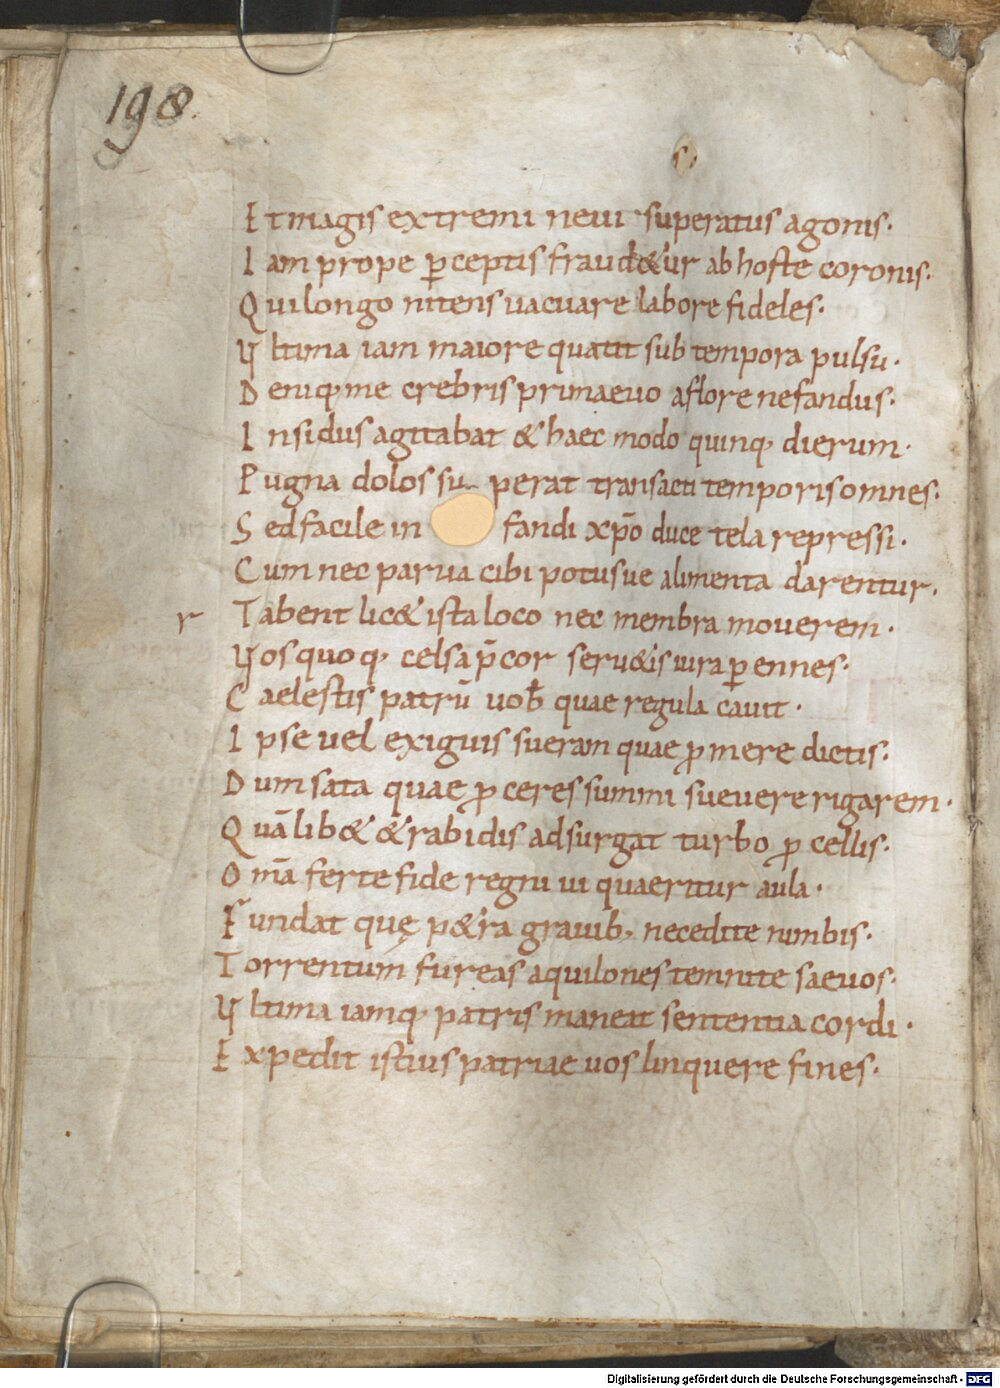 198.
Et magis extremi neui superatus agonis.
Iam prope p̄ceptis fraud&ur ab hoste coronis.
Qui longo nitens uacuare labore fideles.
Vltima iam maiore quatit sub tempora pulsu.
Deniq; me crebris primaeuo a flore nefandus.
Insidiis agitabat & haec modo quinq; dierum.
Pugna dolos su perat transacti temporis omnes.
Sed facile in fandi xp̄o duce tela repressi.
Cum nec parua cibi potusue alimenta darentur.
r Tabent lic& ista loco nec membra mouerem.
Vos quoq; celsa p̄cor seru&is iura p̄ennes.
Caelestis patrū uob̄ quae regula cauit.
Ipse uel exiguis sueram quae ꝓmere dictis.
Dum sata quae ꝓceres summi sueuere rigarem.
Quālib& & rabidis adsurgat turbo ꝓcellis.
Om̄a ferte fide regni ui quaeritur aula.
Fundat quę p&ra grauib; ne cedite nimbis.
Torrentum fureas aquilones temnite saeuos.
Vltima iamq; patris maneat sententia cordi.
Expedit istius patriae uos linquere fines.
Digitalisierung gefördert durch die Deutsche Forschungsgemeinschaft - DFG